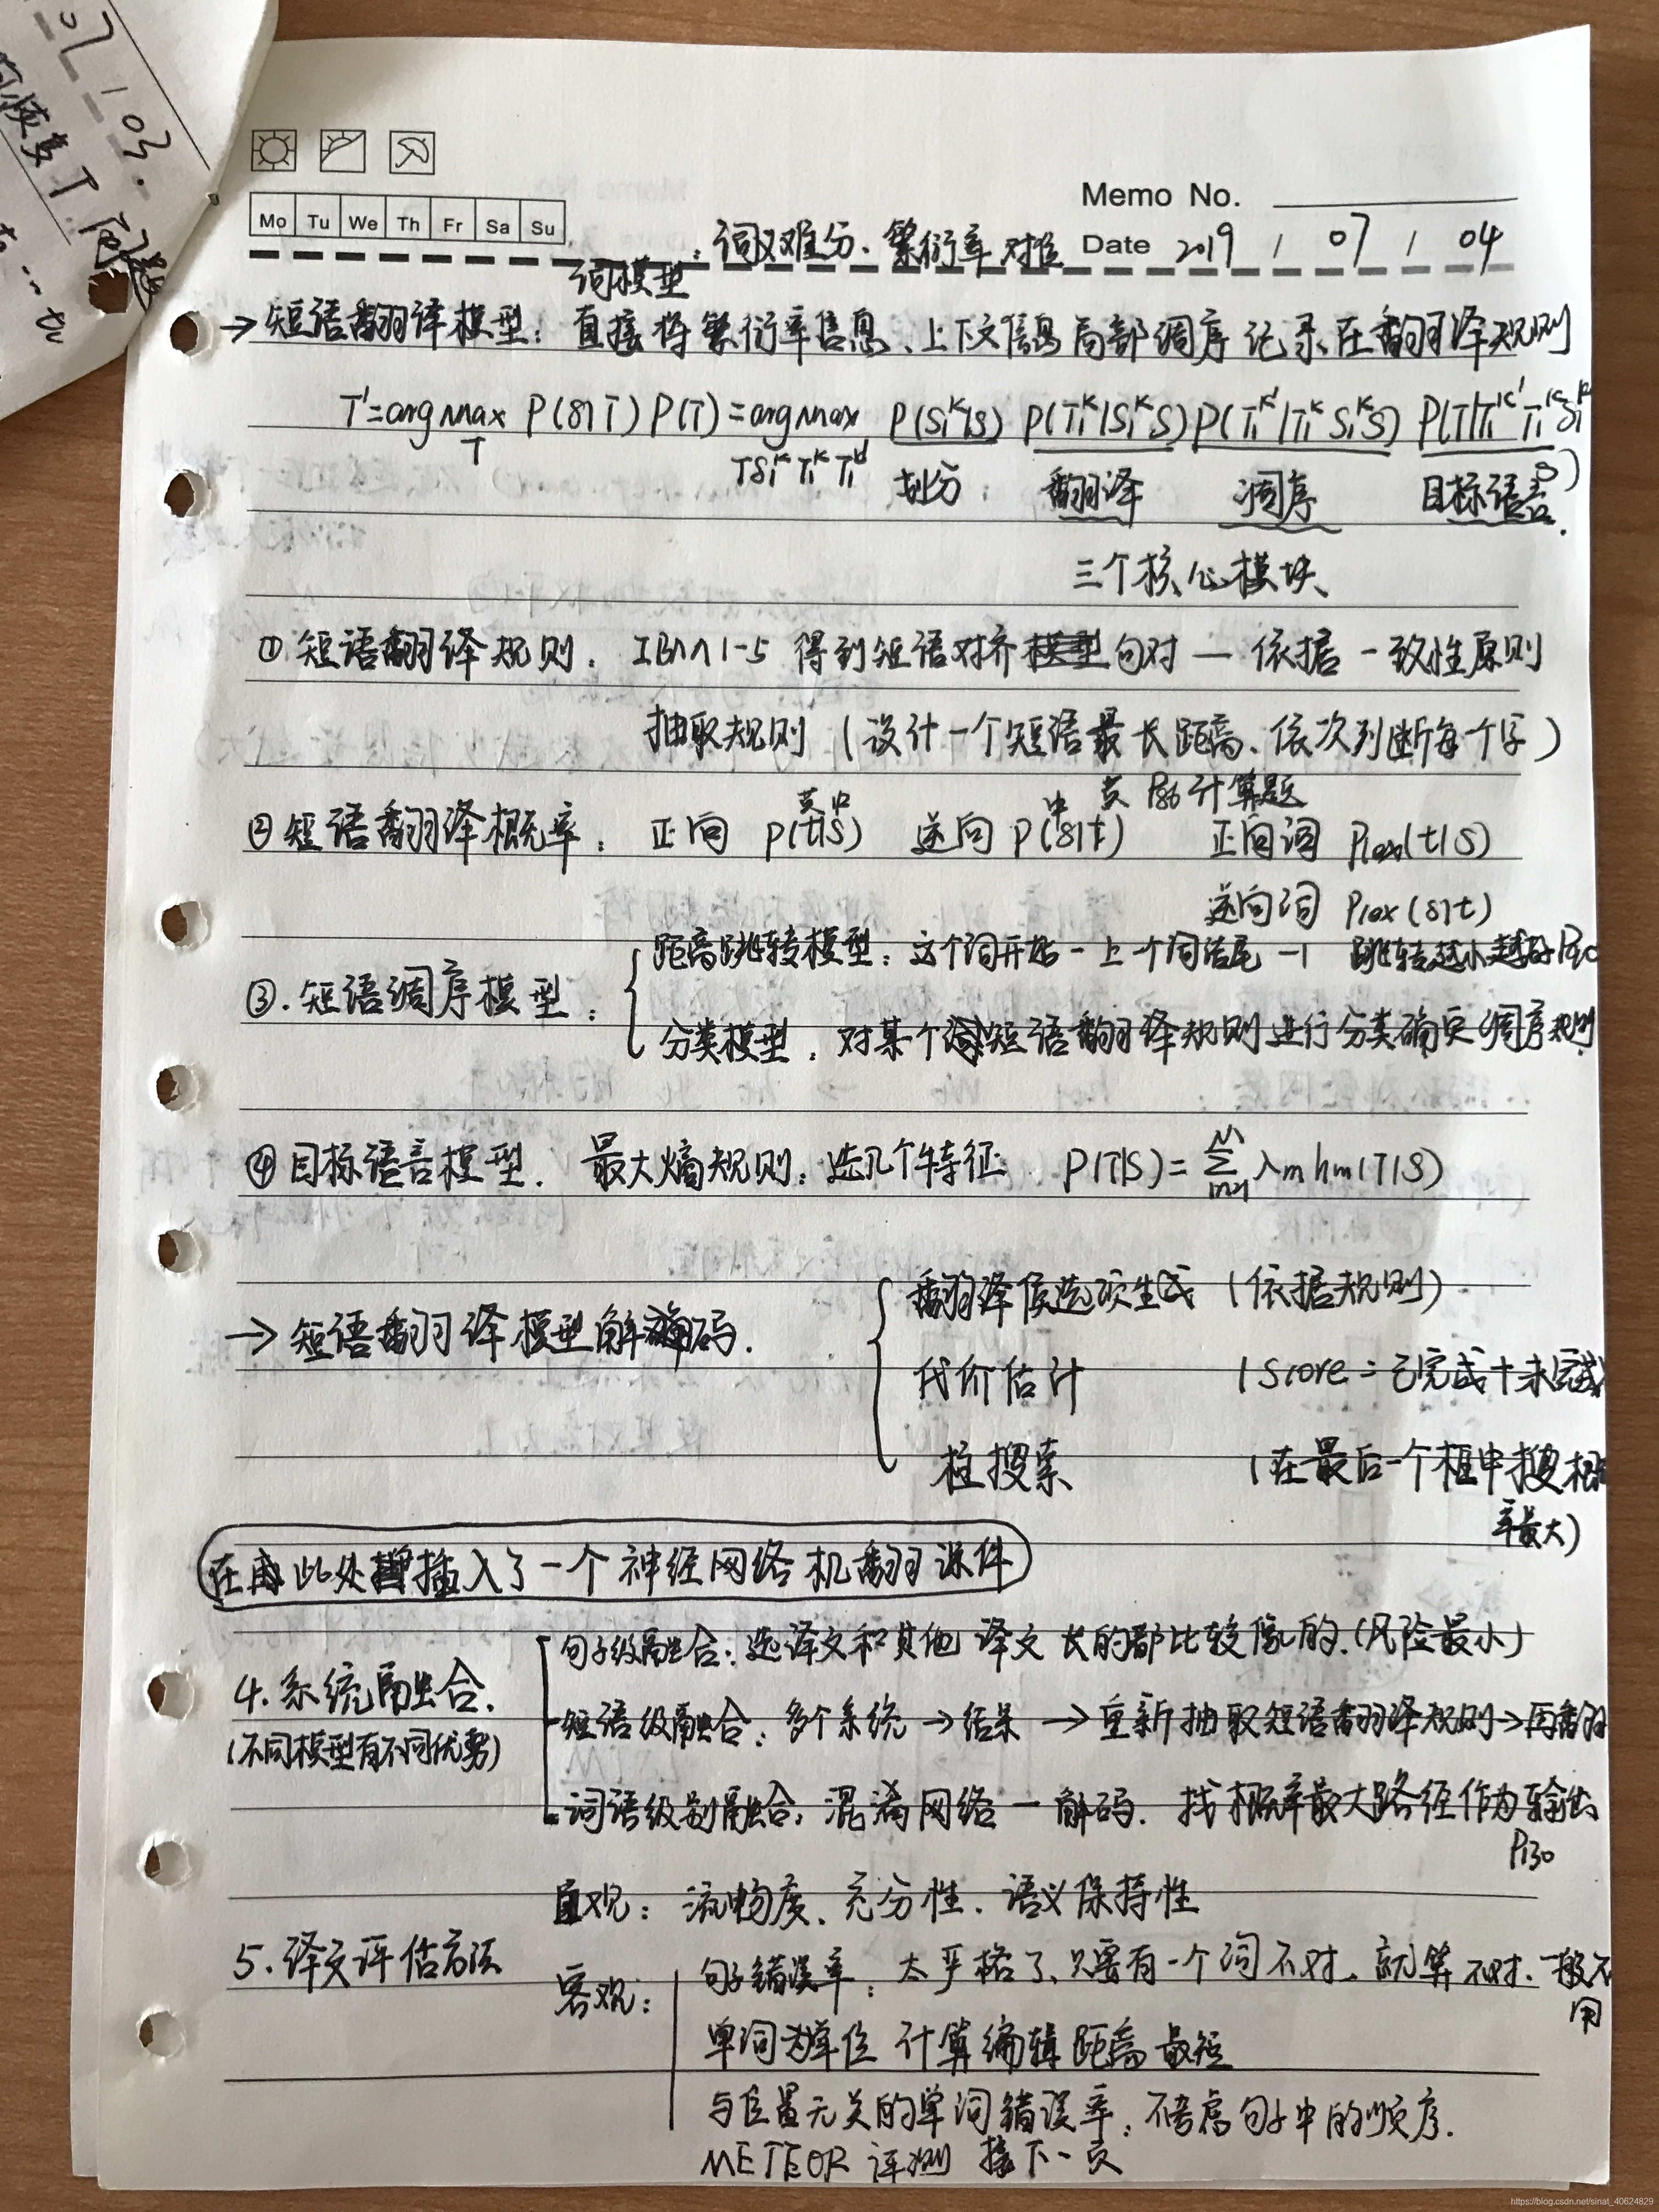 07 / 03.
Memo No.
Mo Tu We Th Fr Sa Su
词模型：词义难分、繁衍率 对位
Date 2019 / 07 / 04
→短语翻译模型：直接将繁衍率信息、上下文信息 局部调序 记录在翻译规则
T'=argmax P(S|T) P(T) = argmax P(S₁ᴷ|S) P(T₁ᴷ|S₁ᴷ S) P(T₁ᴷ'|T₁ᴷ S₁ᴷ S) P(T|T₁ᴷ' T₁ᴷ S₁ᴷ S)
T T S₁ᴷ T₁ᴷ T₁ᴷ' 划分 翻译 调序 目标语言.
三个核心模块
① 短语翻译规则：IBM 1-5 得到短语对齐句对 — 依据一致性原则
抽取规则（设计一个短语最长距离、依次判断每个字）
英中 中 英 P86 计算题
② 短语翻译概率：正向 P(t|S) 逆向 P(S|t) 正向词 Plex(t|S)
逆向词 Plex(S|t)
距离跳转模型：这个词开始 - 上一个词结尾 -1 跳转越小越好
③. 短语调序模型：
分类模型：对某个短语翻译规则进行分类确定调序规则
④ 目标语言模型. 最大熵规则：选几个特征 P(T|S) = Σ λm hm(T|S)
M
m=1
翻译候选项生成 （依据规则）
→ 短语翻译模型解码.
代价估计 （Score = 已完成+未完成
柱搜索 （在最后一个框中搜概
率最大）
在此处插入了一个神经网络机翻课件
句子级融合：选译文和其他译文长的都比较像的.（风险最小）
4. 系统融合.
短语级融合：多个系统 → 结果 → 重新抽取短语翻译规则 → 再翻
（不同模型有不同优势）
词语级别融合：混淆网络 — 解码. 找概率最大路径作为输出
P130
直观：流畅度、充分性、语义保持性
5. 译文评估方法
客观：句子错误率：太严格了、只要有一个词不对、就算不对、一般不
用
单词为单位 计算编辑距离 最短
与位置无关的单词错误率：不考虑句子中的顺序.
METEOR 评测 接下一页
https://blog.csdn.net/sinat_40624829